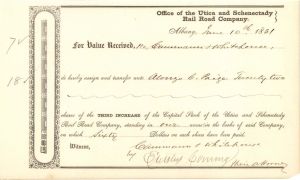 Office of the Utica and Schenectady
Rail Road Company.
Albany June 10th 1851
For Value Received, We Cammann & Whitehouse
do hereby assign and transfer unto Alonzo C. Paige Twenty two
shares of the THIRD INCREASE of the Capital Stock of the Utica and Schenectady
Rail Road Company, standing in our name on the books of said Company,
on which Sixty Dollars on each share have been paid.
Witness, Cammann & Whitehouse
By